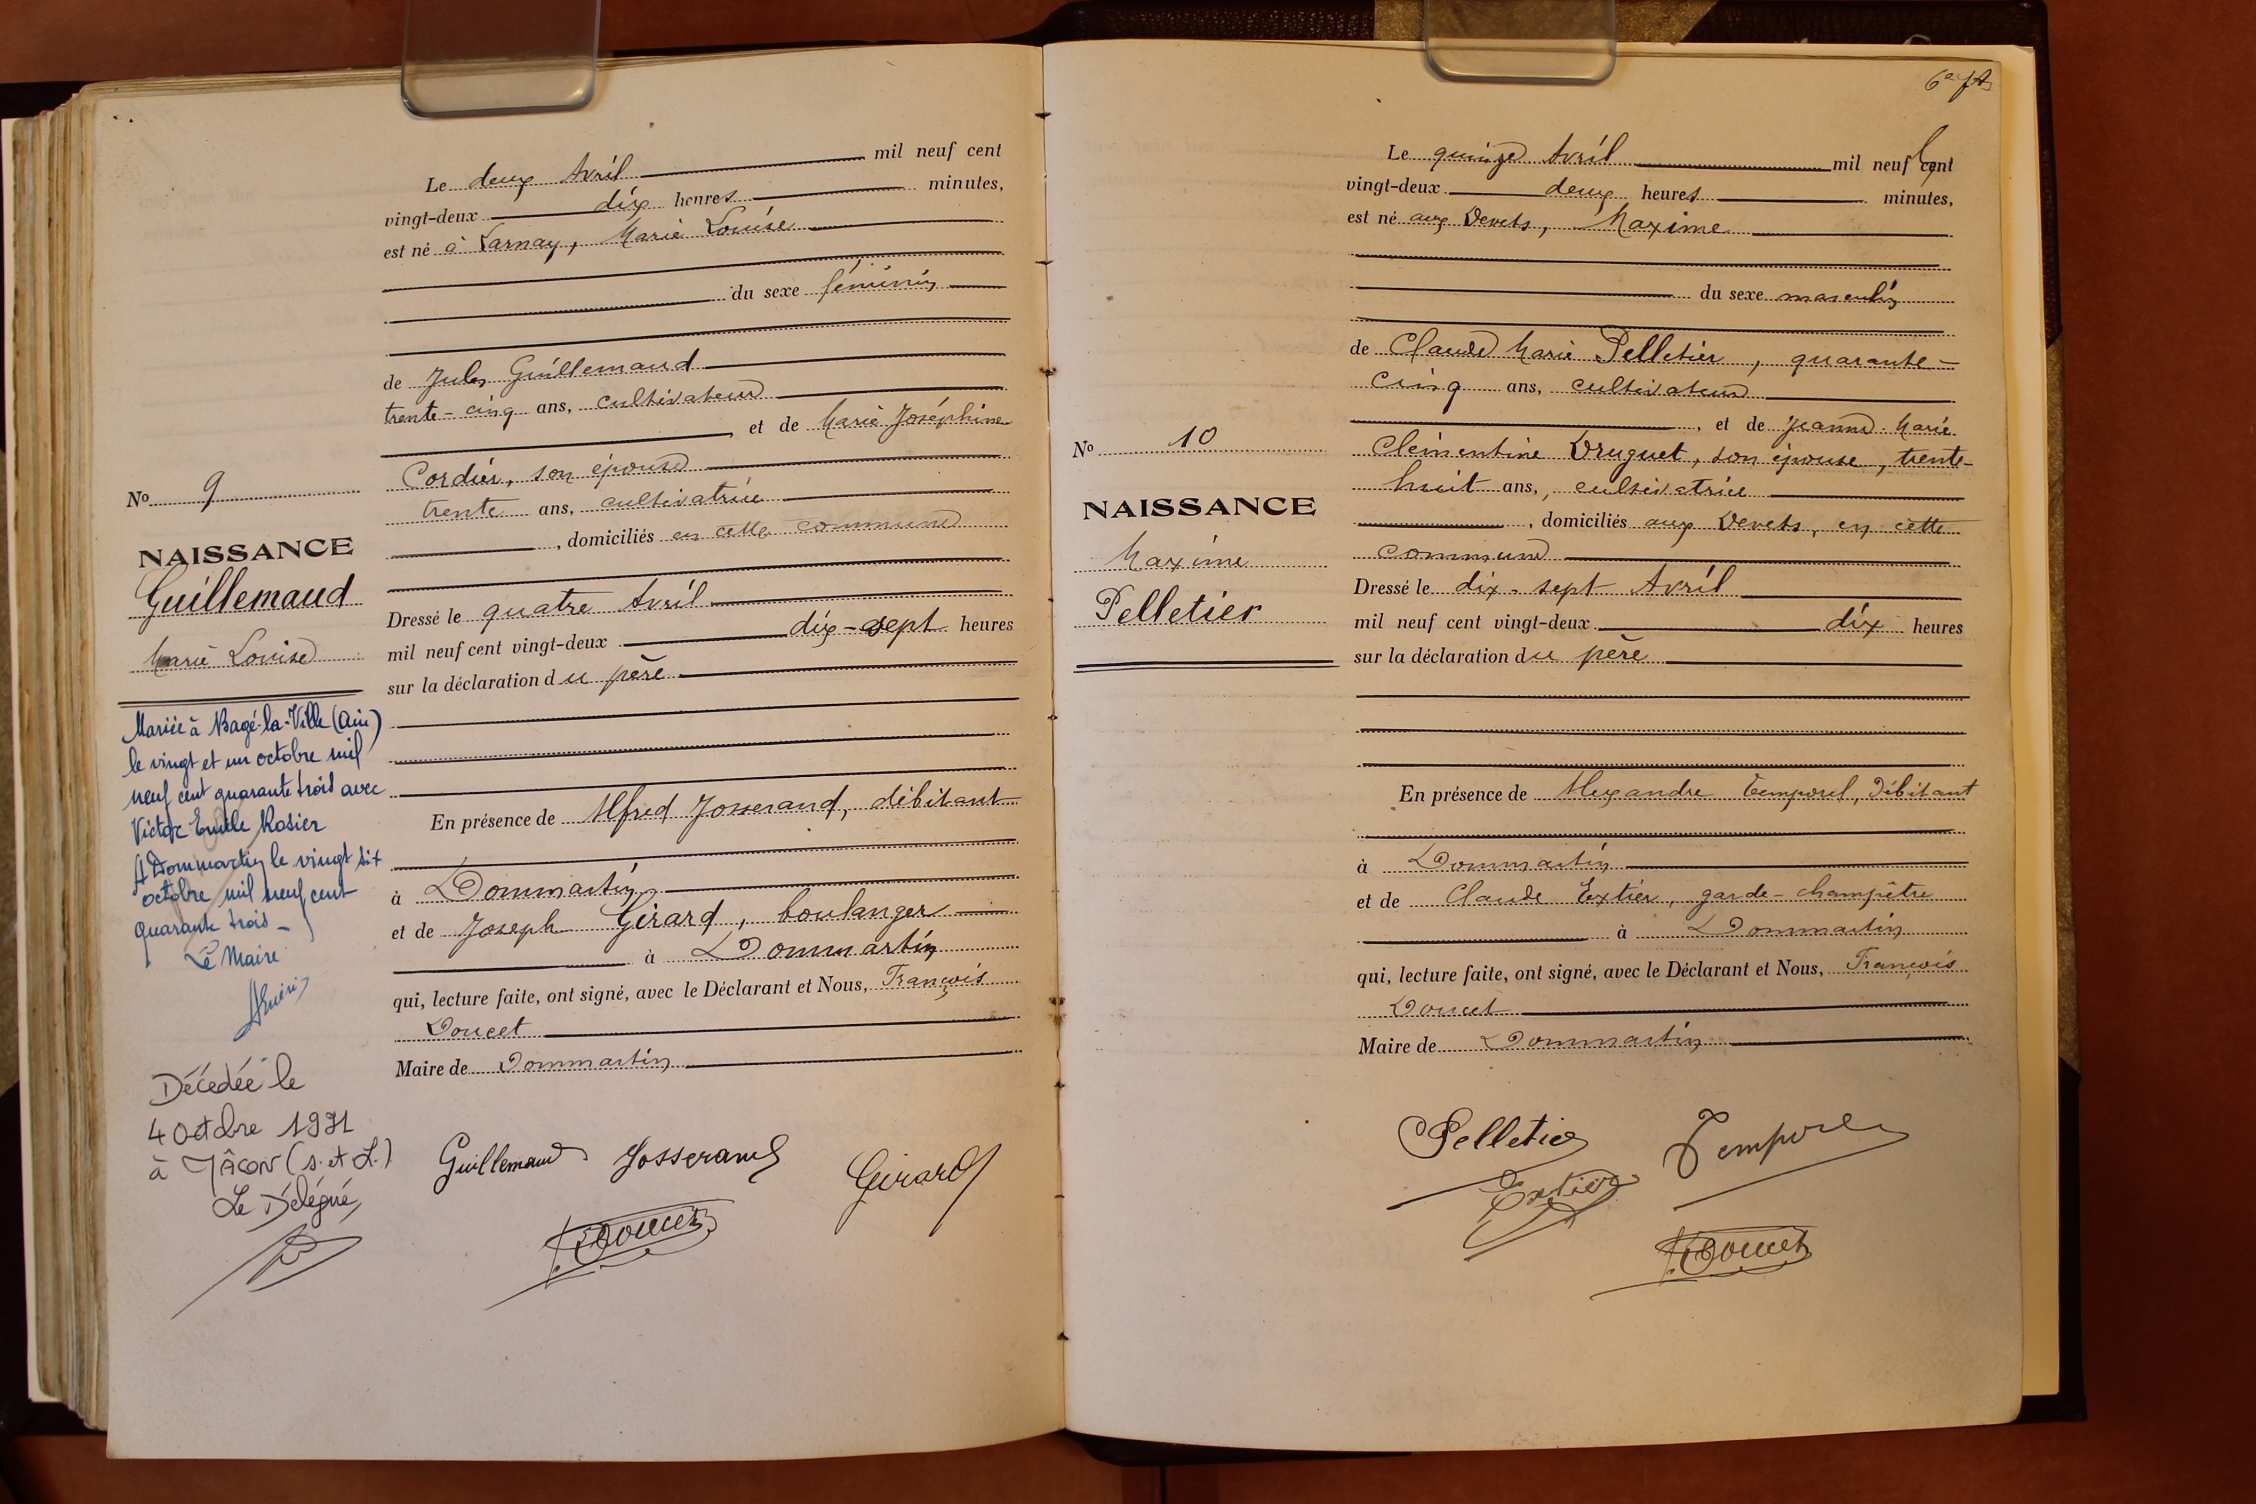 Le deux Avril mil neuf cent
vingt-deux dix heures minutes,
est né à Larnay, Marie Louise
du sexe féminin
de Jules Guillemaud
trente-cinq ans, cultivateur
et de Marie Joséphine
Cordier, son épouse
trente ans, cultivatrice
, domiciliés en cette commune
Dressé le quatre Avril
mil neuf cent vingt-deux dix-sept heures
sur la déclaration du père
En présence de Alfred Josserand, débitant
à Dommartin
et de Joseph Girard, boulanger
à Dommartin
qui, lecture faite, ont signé, avec le Déclarant et Nous, François
Doucet
Maire de Dommartin
Guillemaud Josserand Girard
F. Doucet
No 9
NAISSANCE
Guillemaud
Marie Louise
Mariée à Bagé-la-Ville (Ain)
le vingt et un octobre mil
neuf cent quarante trois avec
Victor Emile Rosier
A Dommartin le vingt six
octobre mil neuf cent
quarante trois
Le Maire
Décédée le
4 Octobre 1971
à MÂCON (S. et L.)
Le Délégué,
6e ft
Le quinze Avril mil neuf cent
vingt-deux deux heures minutes,
est né aux Devets, Maxime
du sexe masculin
de Claude Marie Pelletier, quarante-
cinq ans, cultivateur
, et de Jeanne Marie
Clémentine Druguet, son épouse, trente-
huit ans, cultivatrice
, domiciliés aux Devets, en cette
commune
Dressé le dix-sept Avril
mil neuf cent vingt-deux dix heures
sur la déclaration du père
En présence de Alexandre Temporel, Débitant
à Dommartin
et de Claude Extier, garde-champêtre
à Dommartin
qui, lecture faite, ont signé, avec le Déclarant et Nous, François
Doucet
Maire de Dommartin
Pelletier Temporel
Extier
F. Doucet
No 10
NAISSANCE
Maxime
Pelletier